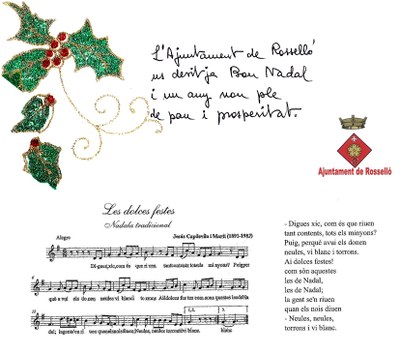 L'Ajuntament de Rosselló
us desitja Bon Nadal
i un any nou ple
de pau i prosperitat.
Ajuntament de Rosselló
Les dolces festes
Nadala tradicional
Jesús Capdevila i Martí (1891-1982)
Alegre
- Digues xic, com és que riuen
tant contents, tots els minyons?
Puig, perqué avui els donen
neules, vi blanc i torrons.
Ai dolces festes!
com són aquestes
les de Nadal,
les de Nadal;
la gent se'n riuen
quan els nois diuen
- Neules, neules,
torrons i vi blanc.